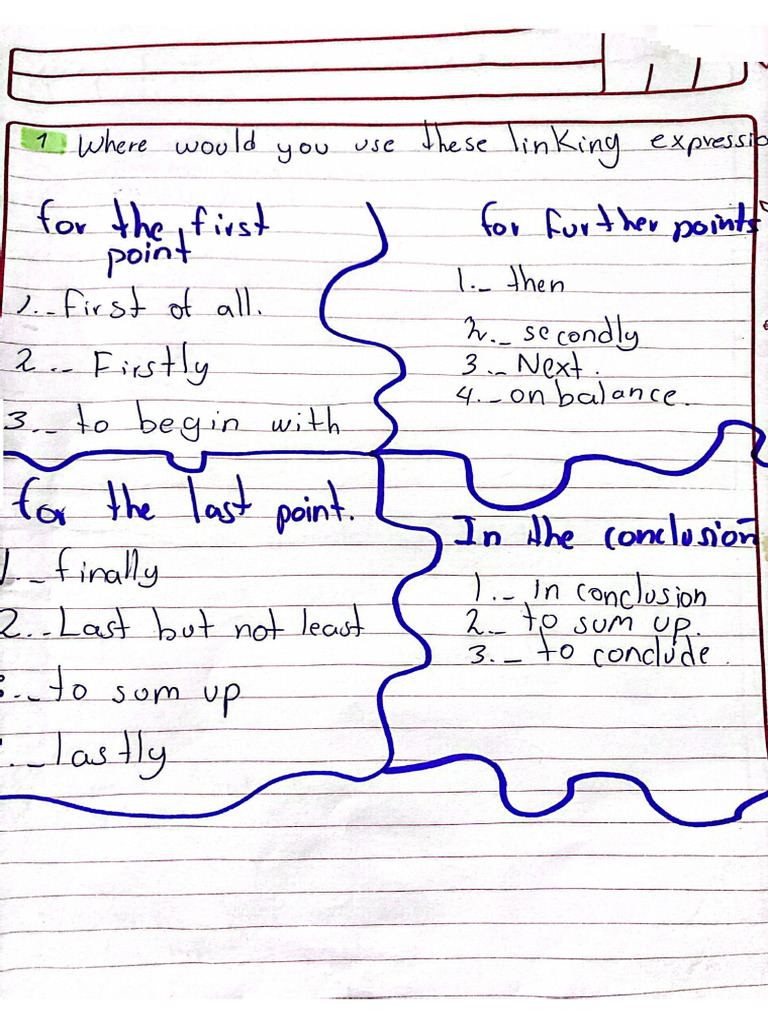 1 Where would you use these linking expressio
for the first
point
1._ first of all.
2._ Firstly
3._ to begin with
for further points
1._ then
2._ secondly
3._ Next.
4._ on balance.
for the last point.
1._ finally
2._ Last but not least
._ to sum up
._ lastly
In the conclusion
1._ In conclusion
2._ to sum up.
3._ to conclude.